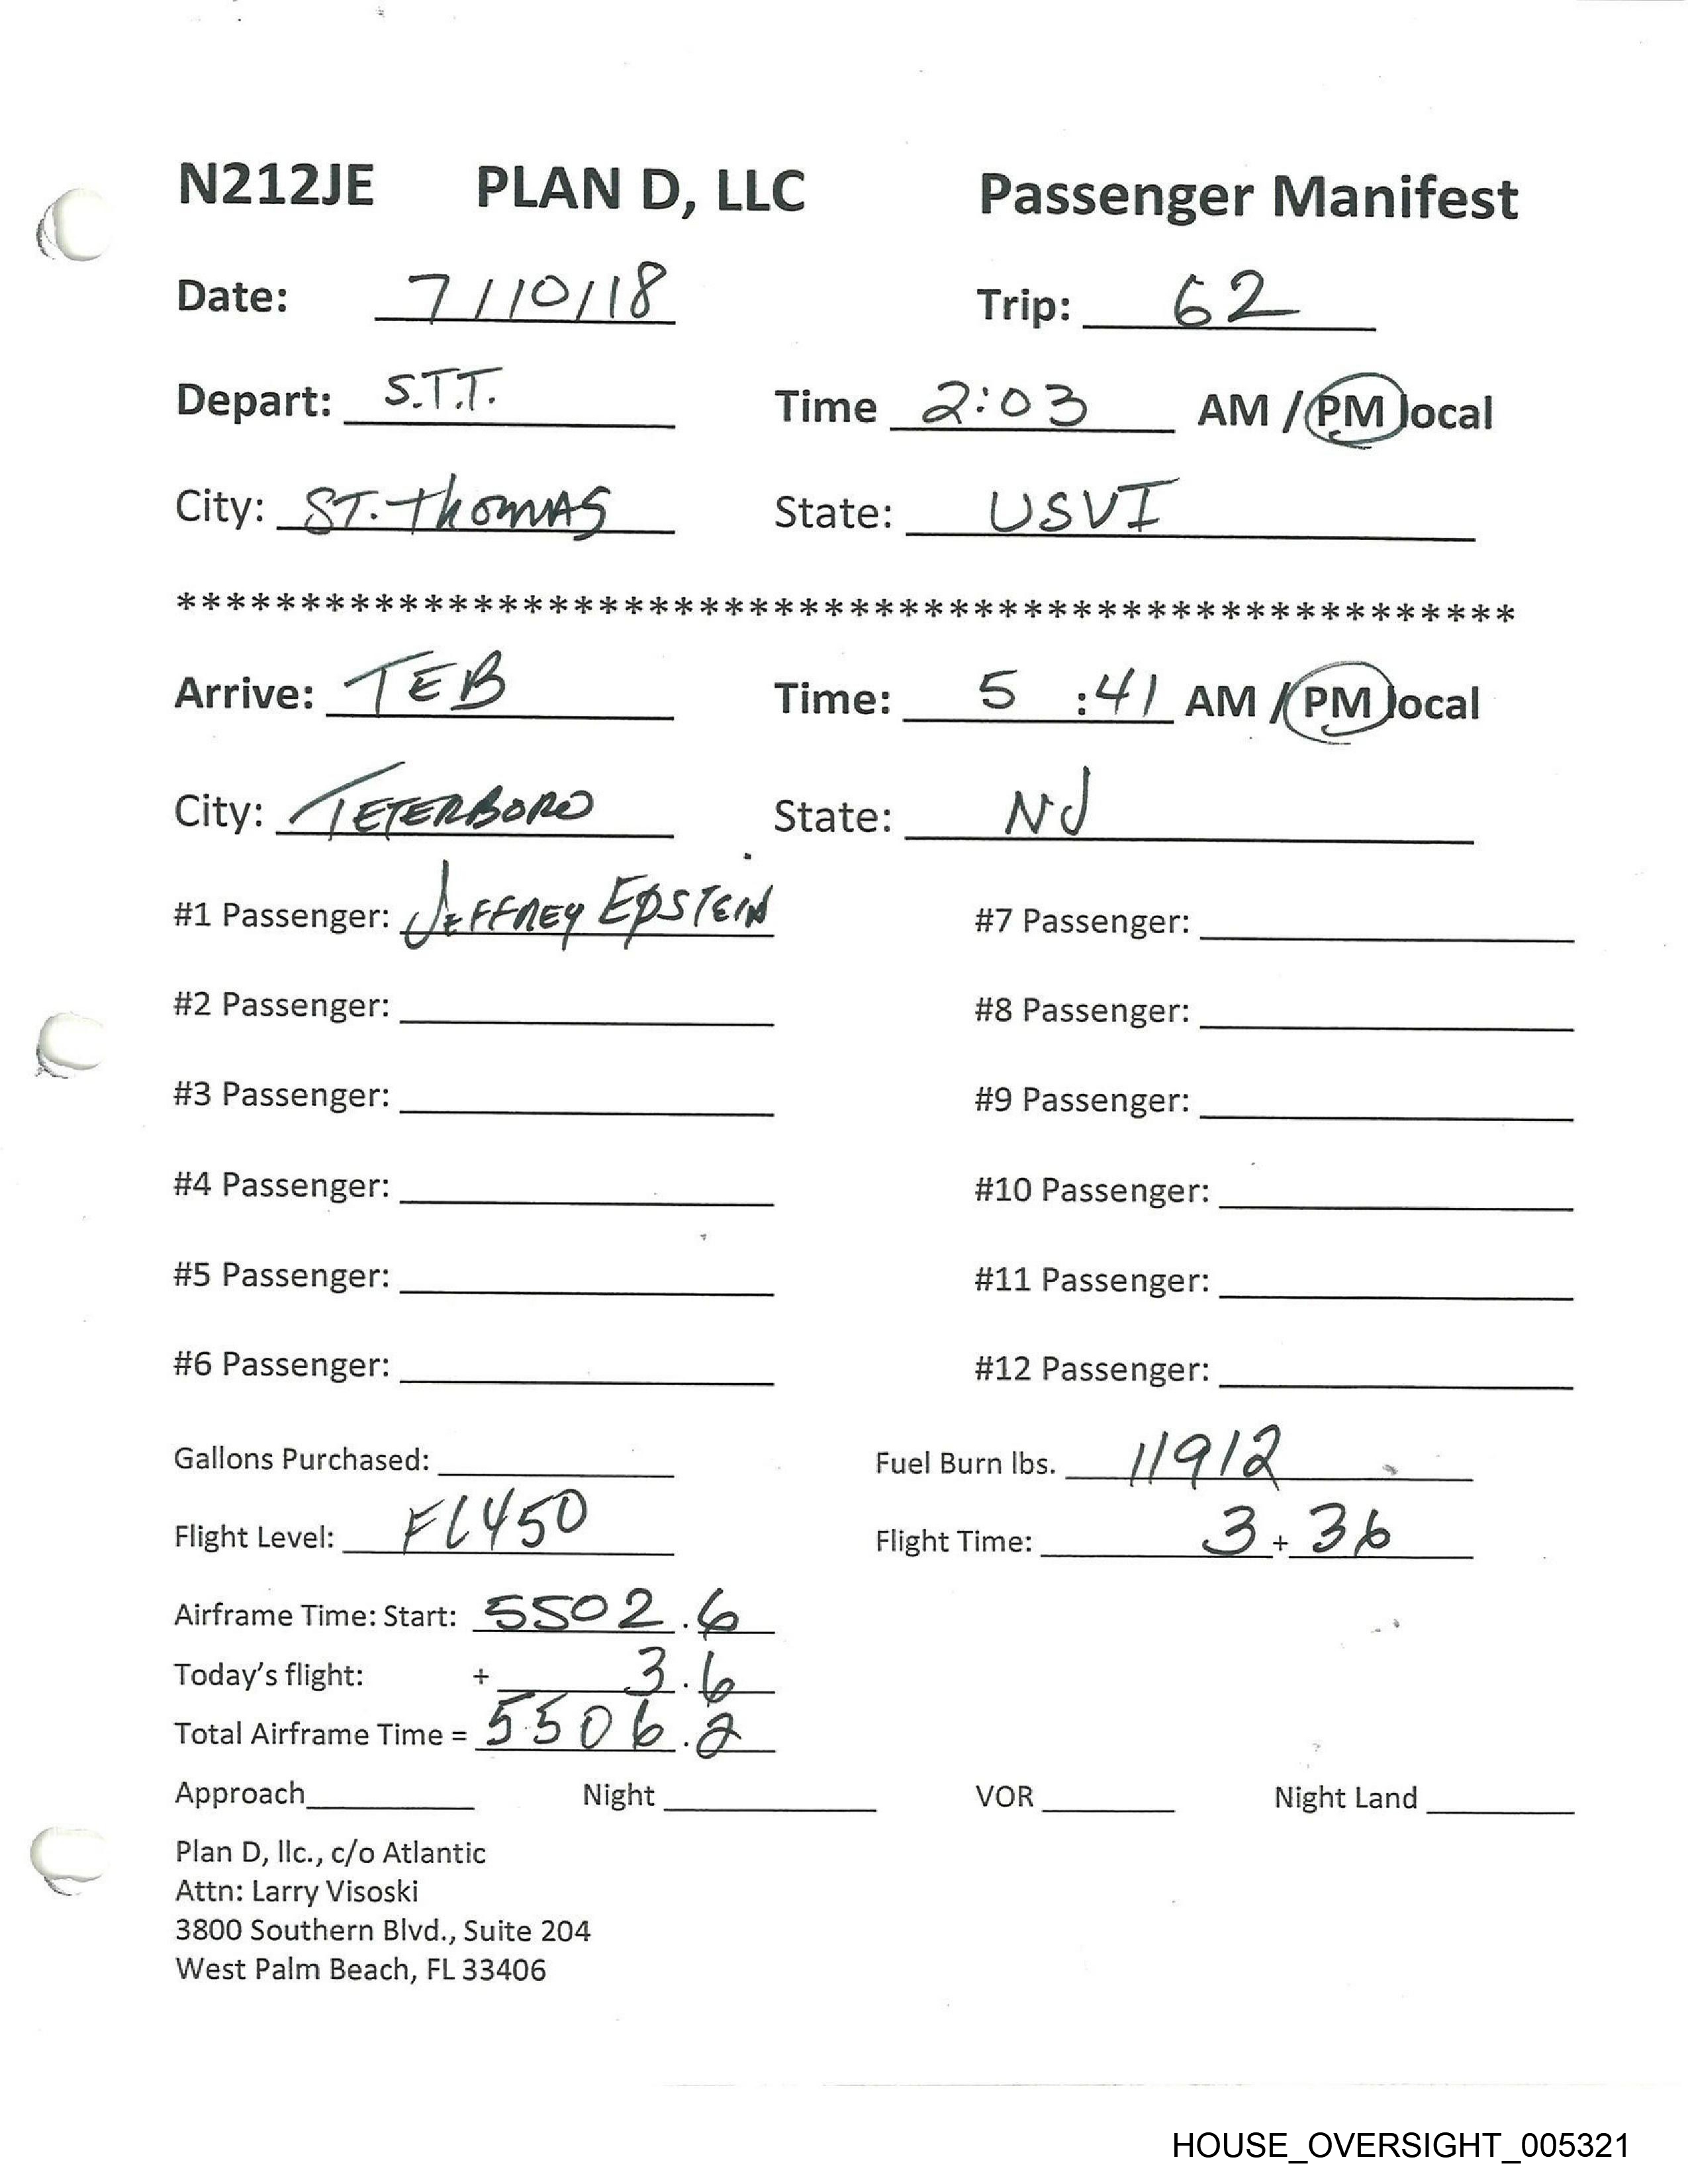 N212JE PLAN D, LLC Passenger Manifest
Date: 7/10/18 Trip: 62
Depart: S.T.T. Time 2:03 AM / PM local
City: ST. Thomas State: USVI
******************************************************
Arrive: TEB Time: 5 :41 AM / PM local
City: TETERBORO State: NJ
#1 Passenger: JEFFREY EPSTEIN #7 Passenger:
#2 Passenger: #8 Passenger:
#3 Passenger: #9 Passenger:
#4 Passenger: #10 Passenger:
#5 Passenger: #11 Passenger:
#6 Passenger: #12 Passenger:
Gallons Purchased: Fuel Burn lbs. 11912
Flight Level: FL450 Flight Time: 3 + 36
Airframe Time: Start: 5502.6
Today's flight: + 3.6
Total Airframe Time = 5506.2
Approach Night VOR Night Land
Plan D, llc., c/o Atlantic
Attn: Larry Visoski
3800 Southern Blvd., Suite 204
West Palm Beach, FL 33406
HOUSE_OVERSIGHT_005321